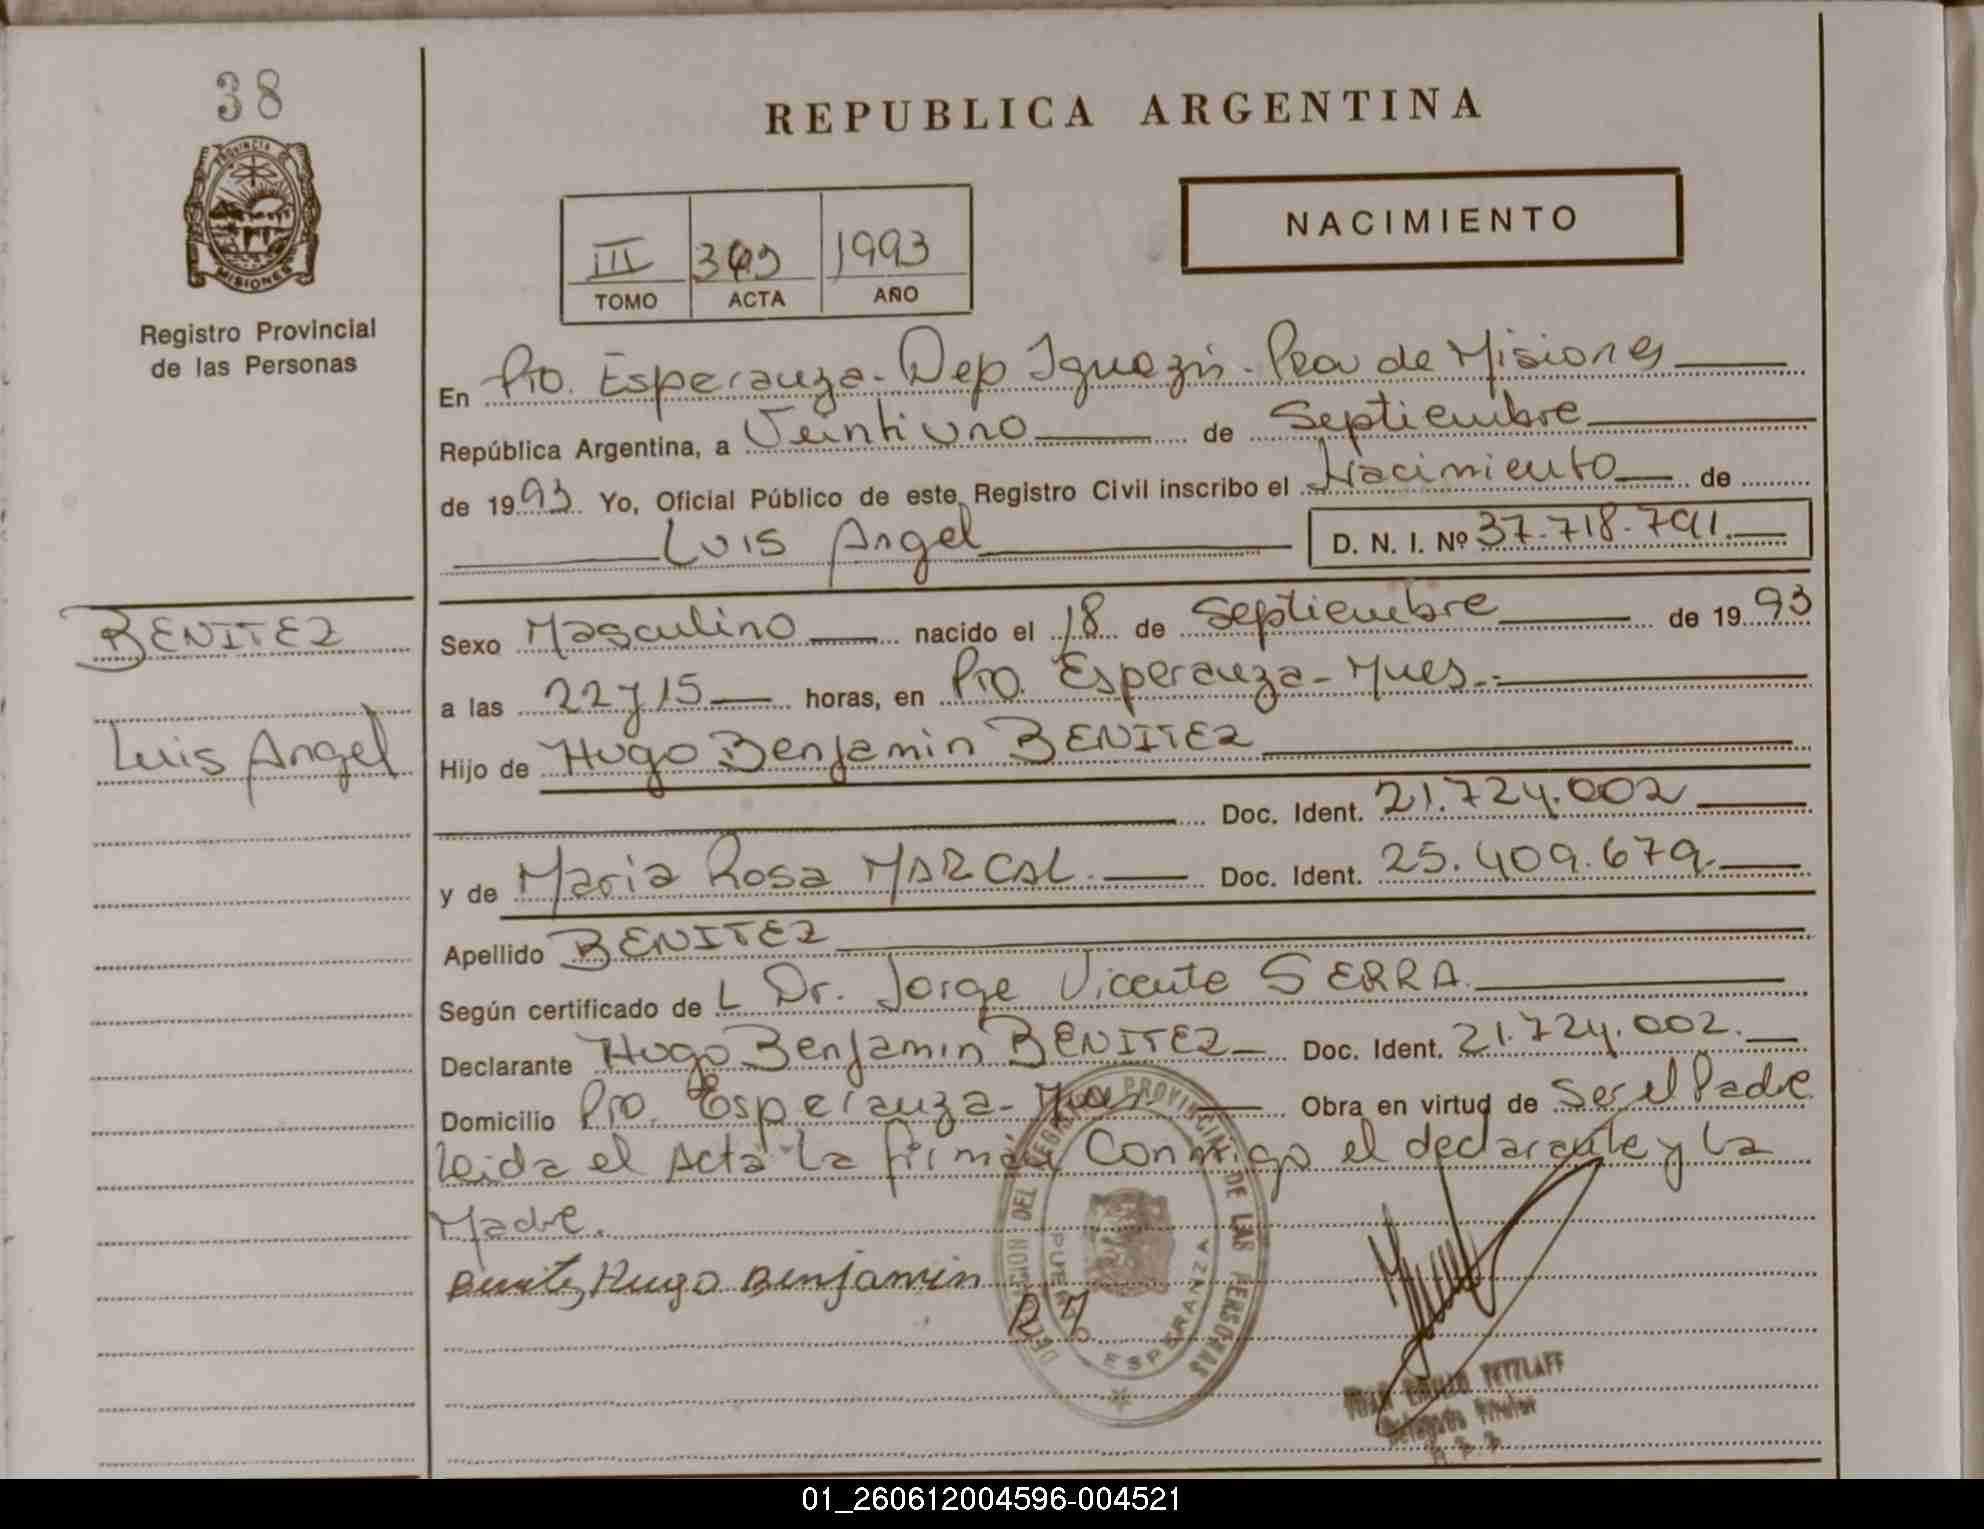 38
REPUBLICA ARGENTINA
PROVINCIA DE
MISIONES
Registro Provincial
de las Personas
NACIMIENTO
III 1993
TOMO ACTA AÑO
En Pto. Esperanza - Dep Iguazú - Pcia de Misiones
República Argentina, a Veintiuno de Septiembre
de 1993 Yo, Oficial Público de este Registro Civil inscribo el Nacimiento de
Luis Angel D. N. I. Nº 37.718.791.
BENITEZ
Luis Angel
Sexo Masculino nacido el 18 de Septiembre de 1993
a las 22 y 15 horas, en Pto. Esperanza - Mnes.
Hijo de Hugo Benjamin BENITEZ
Doc. Ident. 21.724.002
y de Maria Rosa MARCAL. Doc. Ident. 25.409.679.
Apellido BENITEZ
Según certificado de L Dr. Jorge Vicente SERRA.
Declarante Hugo Benjamin BENITEZ Doc. Ident. 21.724.002.
Domicilio Pto. Esperanza - Obra en virtud de Ser el Padre
Leida el Acta la firman Conmigo el declarante y la
Madre.
Benitez Hugo Benjamin
DELEGACION DEL REGISTRO PROVINCIAL DE LAS PERSONAS
PUERTO ESPERANZA
TETZLAFF
Delegado Titular
01_260612004596-004521